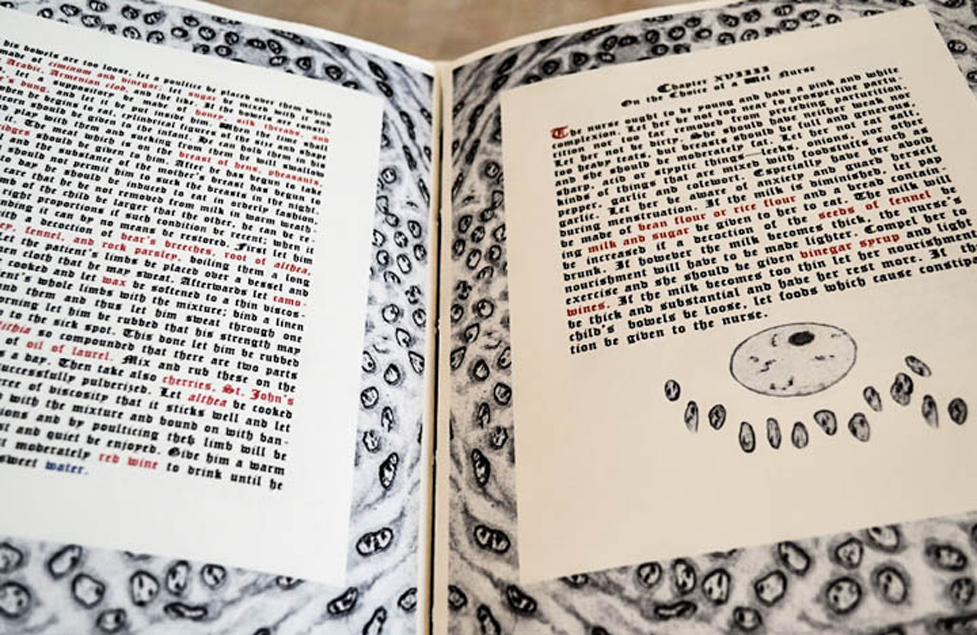 his bowels are too loose, let a poultice be placed over them which
made of cinnamon and vinegar, let sugar be mixed with it
Arabic, Armenian clod, and the like. If the bowels are
let a suppository be made of honey, silk threads, and
dung. And let it be put inside him. When the time shall
when he begins to eat, cylindrical figures of the size and shape
acorn should be given to the infant. He can hold them in his
and play with them and suck from them and he will swallow
it. The meat which is on the breast of hens, pheasants,
should be given to him. After he has begun to take
and the substance of his mother's breast has begun to
should not permit him to suck the breasts in the night.
to day he should be removed from milk in orderly fashion.
care that he be not induced to eat in warm weather.
limb of the child be larger than the other, he can be re-
right proportions if such condition be recent; when it
standing it can by no means be restored. First let him
with decoction of bear's breeches, root of althea,
fennel, and rock parsley, boiling them a long
Let the patient's limbs be placed over a vessel and
linen cloth that he may sweat. Afterwards let camo-
cooked and let wax be softened to a thin viscos-
patient's whole limbs with the mixture; bind a linen
and them and thus let him sweat through one
morning let him be rubbed that his strength may
to the sick spot. This done let him be rubbed
so compounded that there are two parts
of oil of laurel. Mix and rub these on the
a day. Then take also cherries, St. John's
successfully pulverised. Let althea be cooked
degree of viscosity that it sticks well and let
with the mixture and bound on with ban-
and by poulticing the limb will be
and quiet be enjoyed. Give him a warm
moderately red wine to drink until he
sweet water.
Chapter XVIIII
On the Choice of a Wet Nurse
The nurse ought to be young and have a pink and white
complexion. Let her be not too near to prospective partu-
rition nor too far removed from preceding parturition.
Let her not be dirty. She should have neither weak nor
too heavy teats, but breasts should be full and generous,
and she should be moderately fat. Let her not eat salt,
sharp, acid or styptic things—leeks, onions, nor other
kinds of things that are mixed with foodstuffs such as
pepper, garlic and colewort. Especially have her avoid
garlic. Let her beware of anxiety and guard herself
during menstruation. If the milk is diminished, let pap
be made of bean flour or rice flour and a bread contain-
ing milk and sugar be given to her to eat. The milk will
be increased if a decoction of the seeds of fennel be
drunk. If however the milk becomes thick, the nurse's
nourishment will have to be made lighter. Compel her to
exercise and she should be given vinegar syrup and light
wines. If the milk becomes too thin let her nourishment
be thick and substantial and have her rest more. If the
child's bowels be loose, let foods which cause constipa-
tion be given to the nurse.